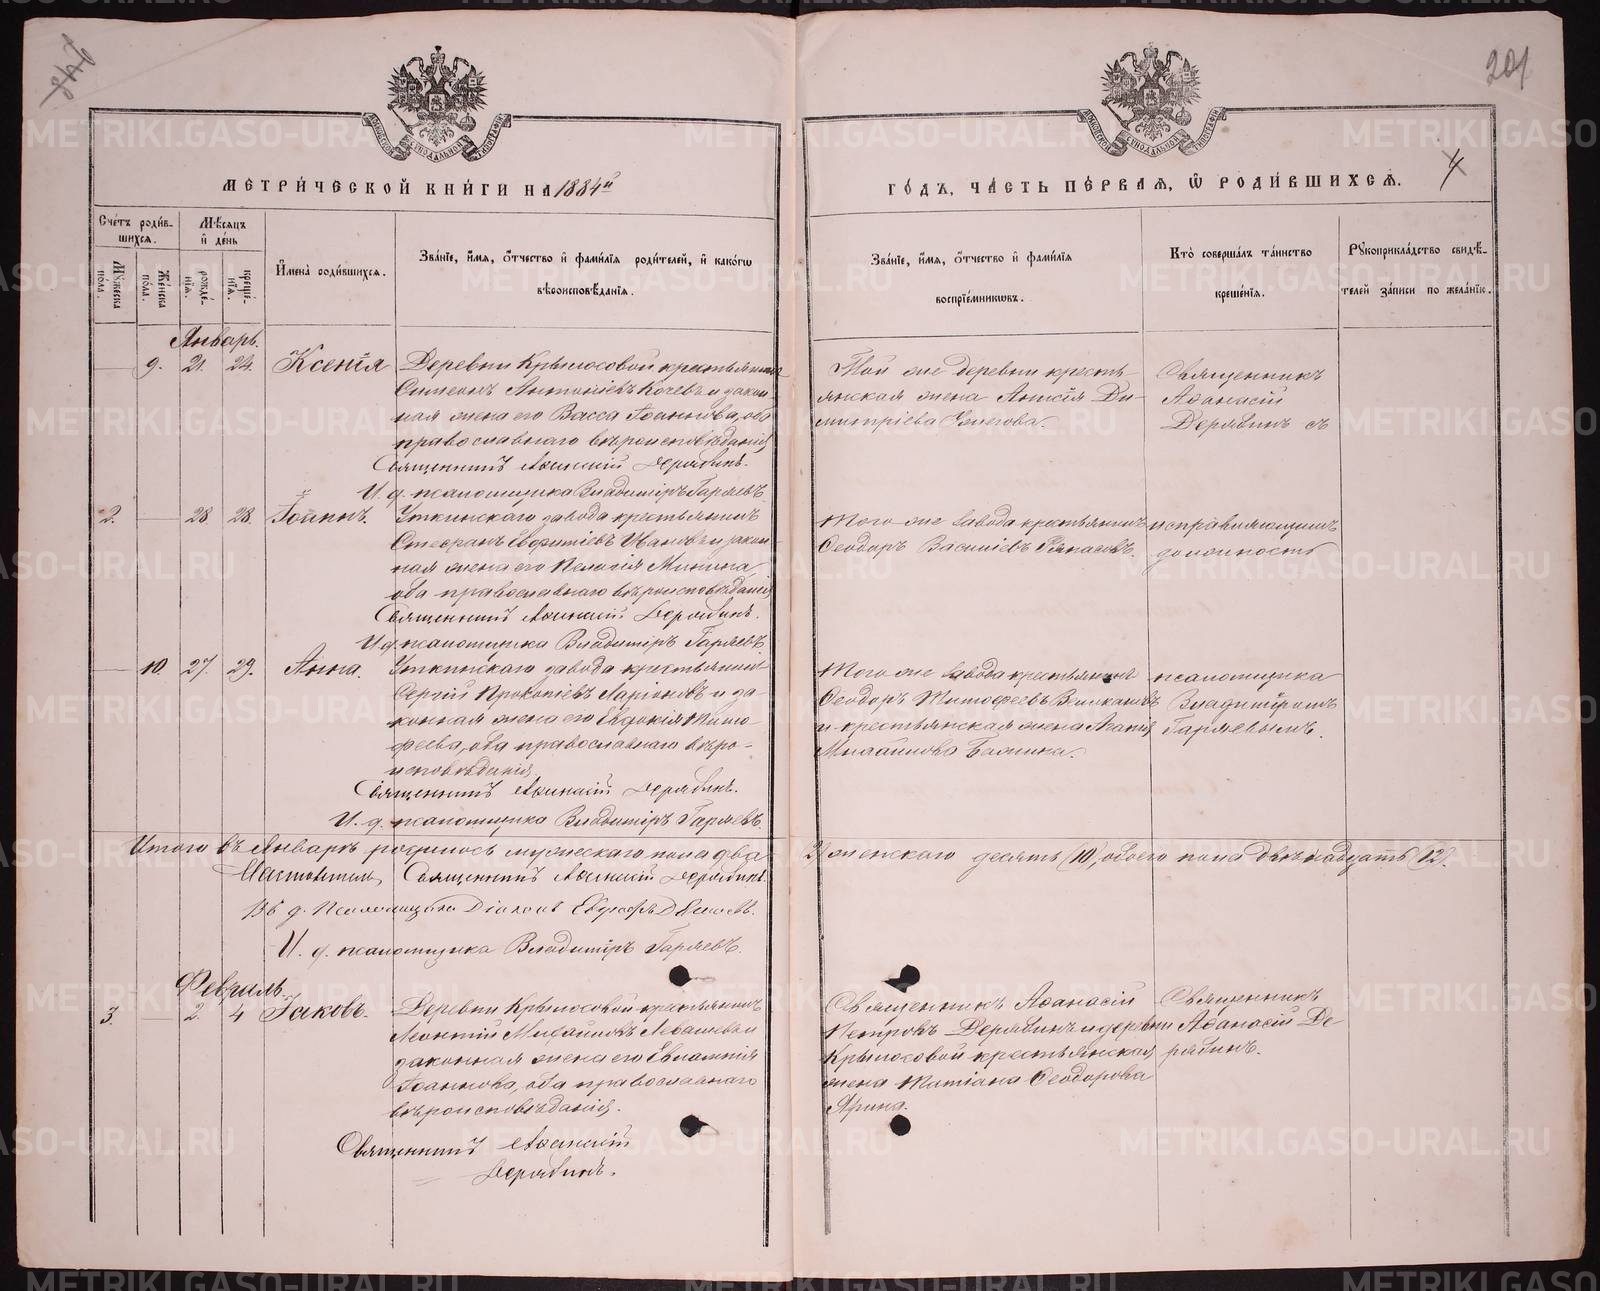 201
4
МЕТРИЧЕСКОЙ КНИГИ НА 1884й
ГОДЪ, ЧАСТЬ ПЕРВАЯ, Ѿ РОДИВШИХСЯ.
Счетъ родив-
шихся.
Мѣсяцъ
и день
Мужеска пола.
Женска пола.
рожде-
нія.
креще-
нія.
Имена родившихся.
Званіе, имя, отчество и фамилія родителей, и какогѡ
вѣроисповѣданія.
Званіе, имя, отчество и фамилія
воспріемниковъ.
Кто совершалъ таинство
крещенія.
Рукоприкладство свидѣ-
телей записи по желанію.
Январь.
9. 21. 24. Ксенія
Деревни Крылосовой крестьянинъ
Симеонъ Антоніевъ Кочевъ и закон-
ная жена его Васса Іоаннова, оба
православнаго вѣроисповѣданія
Священникъ Аѳанасій Дерябинъ.
И. д. псаломщика Владиміръ Гаряевъ.
Той же деревни кресть-
янская жена Анисія Ди-
митріева
Священникъ
Аѳанасій
Дерябинъ съ
2. 28. 28. Іоаннъ.
Уткинскаго завода крестьянинъ
Стефанъ Евфиміевъ и закон-
ная жена его Пелагія Минина,
оба православнаго вѣроисповѣданія
Священникъ Аѳанасій Дерябинъ.
И. д. псаломщика Владиміръ Гаряевъ.
Того же завода крестьянинъ
Ѳеодоръ Василіевъ
исправляющимъ
должность
10. 27. 29. Анна.
Уткинскаго завода крестьянинъ
Сергій Прокопіевъ Ларіоновъ и за-
конная жена его Евдокія Тимо-
феева, оба православнаго вѣро-
исповѣданія.
Священникъ Аѳанасій Дерябинъ.
И. д. псаломщика Владиміръ Гаряевъ.
Того же завода крестьянинъ
Ѳеодоръ Тимофеевъ Великановъ
и крестьянская жена
Михаилова
псаломщика
Владиміромъ
Гаряевымъ.
Итого въ Январѣ родилось мужескаго пола два
2) женскаго десять (10), обоего пола двѣнадцать (12).
Настоятель, Священникъ Аѳанасій Дерябинъ.
Псаломщика Діаконъ
И. д. псаломщика Владиміръ Гаряевъ.
Февраль.
3. 2. 4 Іаковъ.
Деревни Крылосовой крестьянинъ
Леонтій Михаиловъ и
законная жена его Евлампія
Іоаннова, оба православнаго
вѣроисповѣданія.
Священникъ Аѳанасій
Дерябинъ.
Священникъ Аѳанасій
Петровъ Дерябинъ и деревни
Крылосовой крестьянская
жена Татіана Ѳеодорова
Ярина.
Священникъ
Аѳанасій Де-
рябинъ.
METRIKI.GASO-URAL.RU